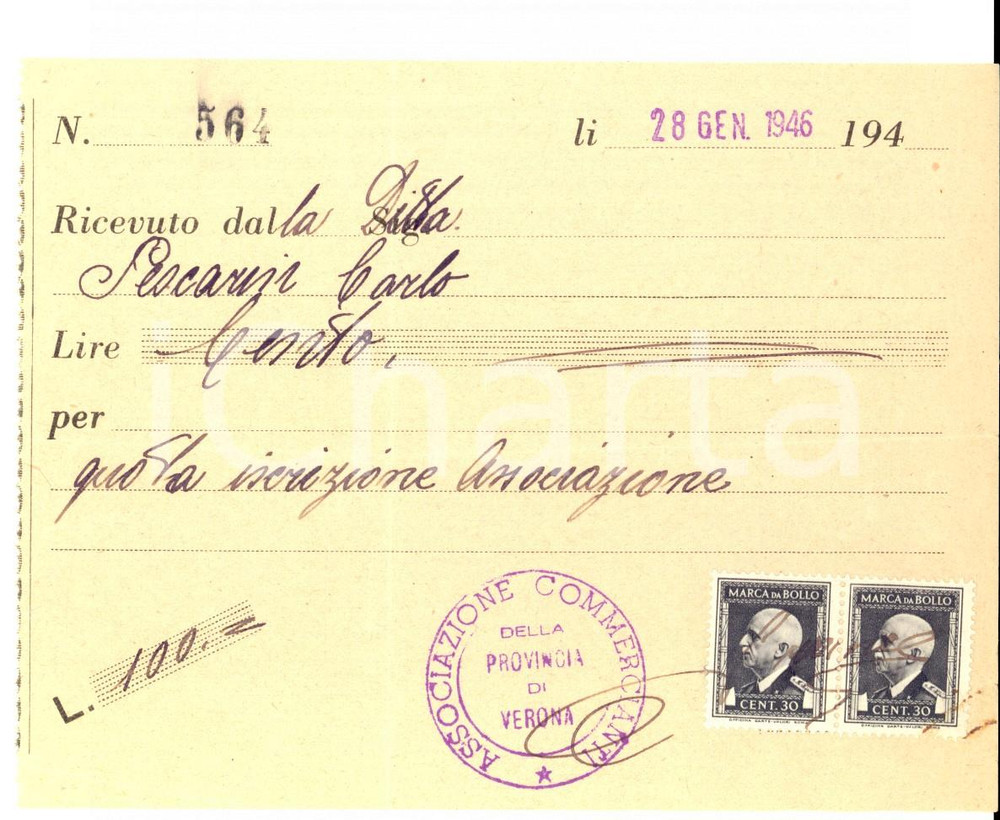 N. 564 li 28 GEN. 1946 194
Ricevuto dalla Ditta
Pescarin Carlo
Lire Cento,
iCharta
per
quota iscrizione Associazione
L. 100.=
ASSOCIAZIONE COMMERCIANTI
DELLA
PROVINCIA
DI
VERONA
MARCA DA BOLLO MARCA DA BOLLO
CENT. 30 CENT. 30